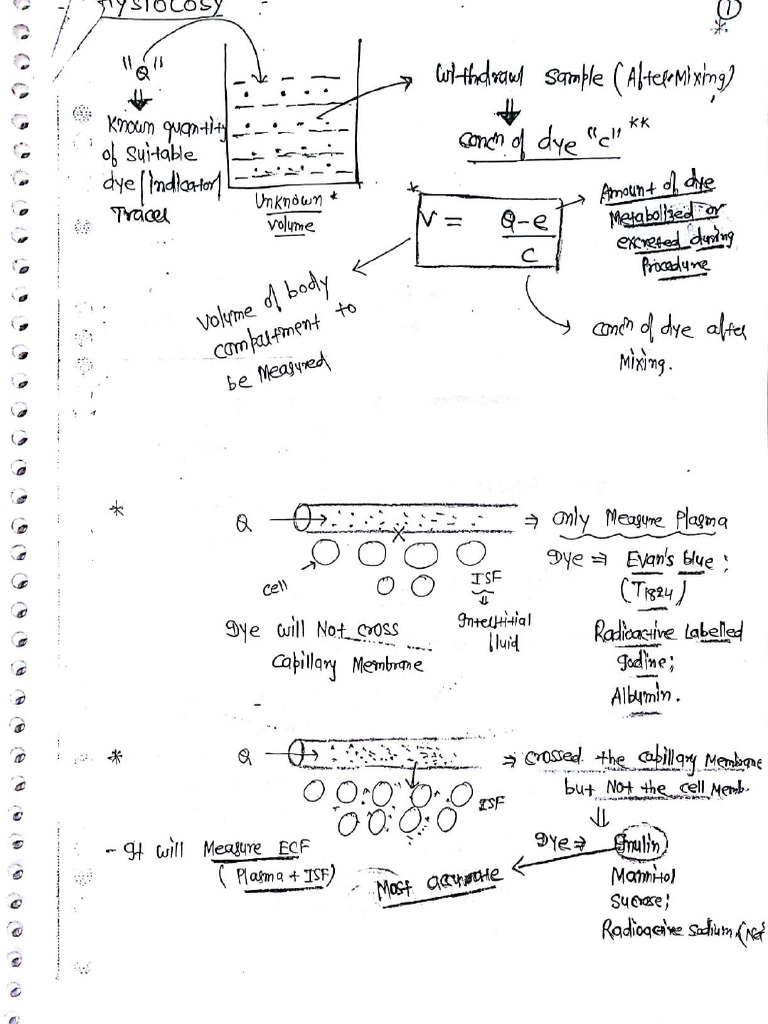 PHYSIOLOGY
1
*
"Q"
Known quantity
of Suitable
dye/indicator/
Tracer
Unknown *
Volume
Withdrawl sample (After Mixing)
concn of dye "c" **
*
V = Q-e
c
Amount of dye
Metabolized or
excreted during
Procedure
Volume of body
compartment to
be Measured
concn of dye after
Mixing.
*
Q
cell
ISF
Interstitial
fluid
Dye will Not cross
Capillary Membrane
⇒ only Measure Plasma
Dye ⇒ Evan's blue;
(T1824)
Radioactive Labelled
Iodine;
Albumin.
*
Q
ISF
⇒ crossed the capillary Membrane
but Not the cell Memb.
- It will Measure ECF
(Plasma + ISF)
Most accurate
Dye ⇒ Inulin
Mannitol
Sucrose;
Radioactive Sodium